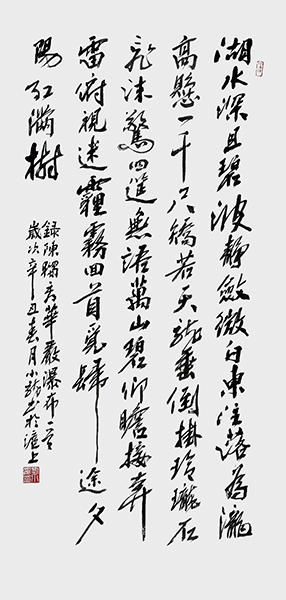 湖水深且碧波靜斂微白東注落為瀧
高懸一千尺矯若天龍垂倒掛玲瓏石
沫驚四筵無語萬山碧仰瞻接奔
雷俯視迷霾霧回首覓歸途夕
陽紅滿樹
録陳獨秀華嚴瀑布一首
歲次辛丑春月小龍書於滬上